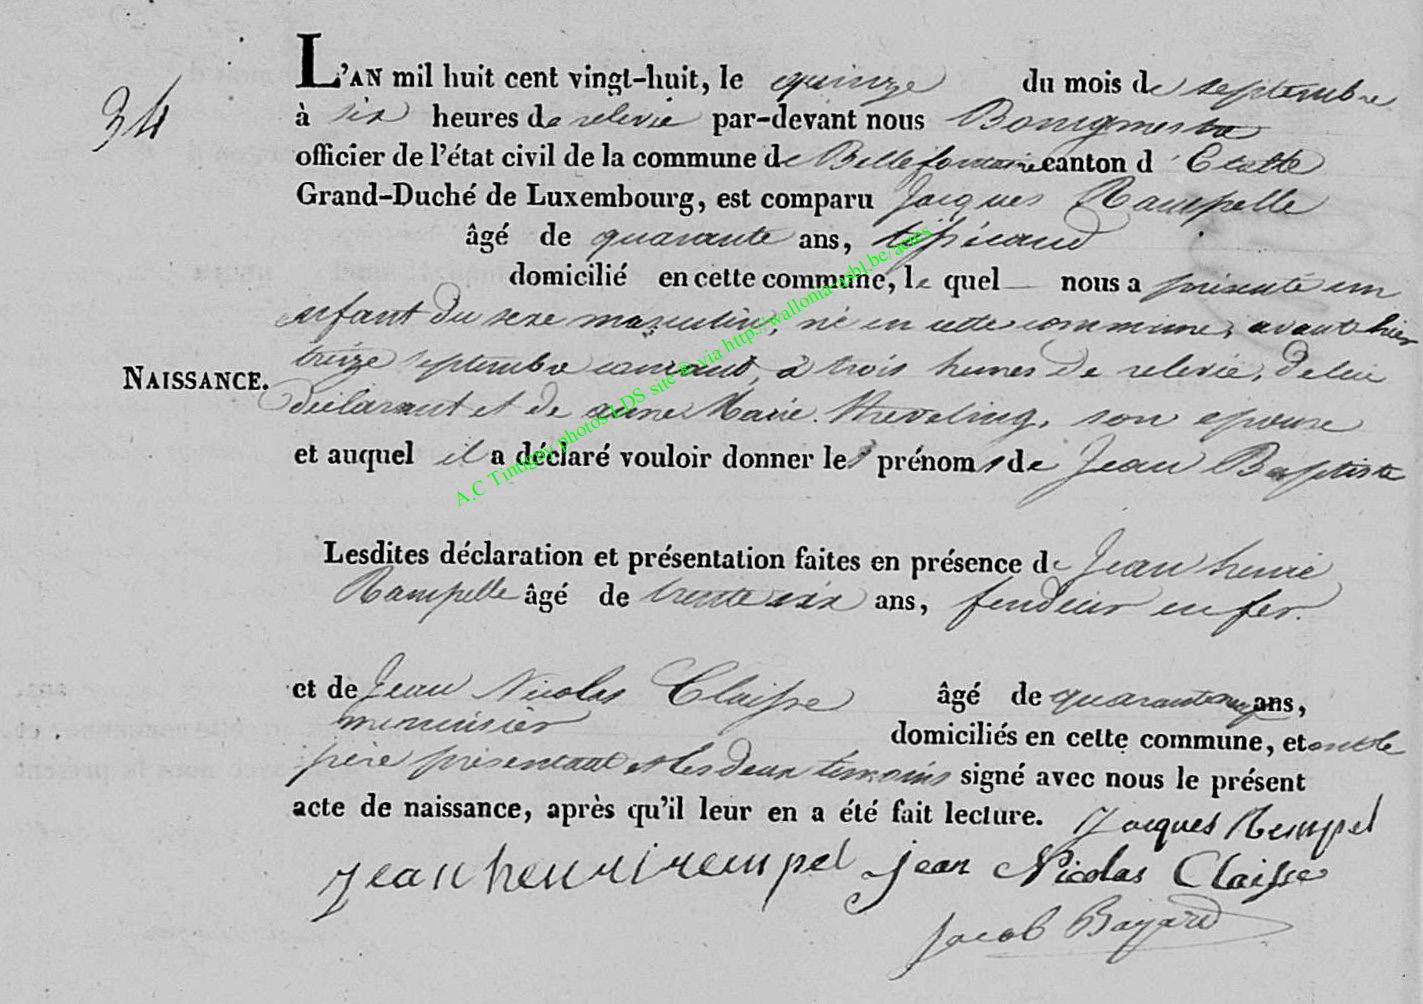 34
L'AN mil huit cent vingt-huit, le quinze du mois de septembre
à six heures de relevée par-devant nous Bourgmestre
officier de l'état civil de la commune de Bellefontaine canton d'Etalle
Grand-Duché de Luxembourg, est comparu Jacques Rampelle
âgé de quarante ans,
domicilié en cette commune, lequel nous a présenté un
enfant du sexe masculin, né en cette commune, avant hier
NAISSANCE.
treize septembre courant, à trois heures de relevée, de lui
déclarant et de anne Marie son epouse
et auquel il a déclaré vouloir donner les prénoms de Jean Baptiste
Lesdites déclaration et présentation faites en présence de Jean henri
Rampelle âgé de trente six ans, fendeur en fer.
et de Jean Nicolas Claisse âgé de ans,
menuisier domiciliés en cette commune, et ont le
père présentant et les deux temoins signé avec nous le présent
acte de naissance, après qu'il leur en a été fait lecture. Jacques Rempel
jean henri rempel jean Nicolas Claisse
Jacob Bayard
A.C Tintigny photos LDS site @ via http://wallonia-asbl.be/actes